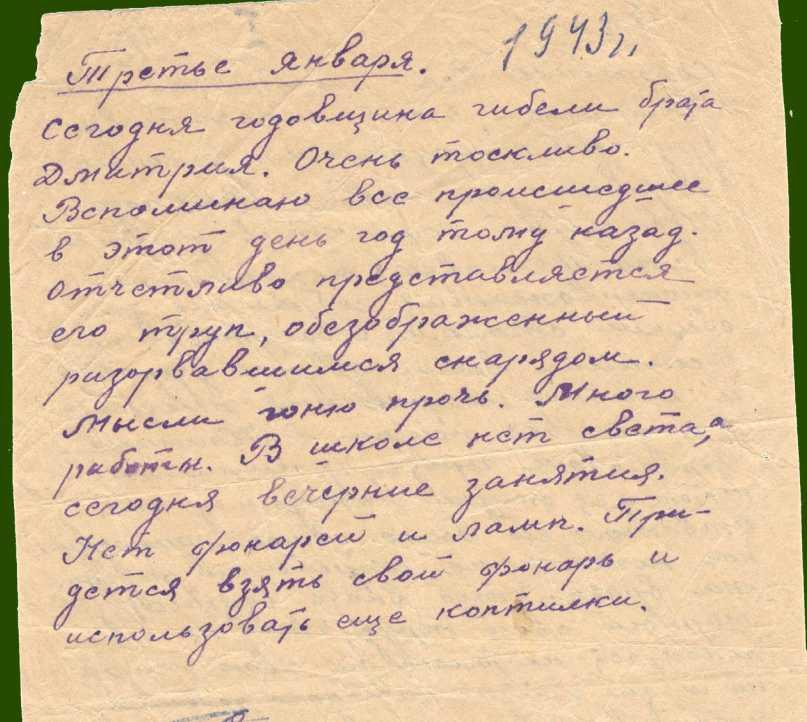 Третье января. 1943 г.
Сегодня годовщина гибели брата
Дмитрия. Очень тоскливо.
Вспоминаю все происшедшее
в этот день год тому назад.
Отчетливо представляется
его труп, обезображенный
разорвавшимся снарядом.
Мысли гоню прочь. Много
работы. В школе нет света, а
сегодня вечерние занятия.
Нет фонарей и ламп. При-
дется взять свой фонарь и
использовать еще коптилки.